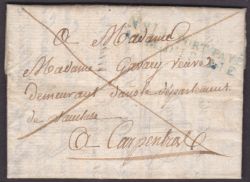 A Madame
Madame Gavary veuve
demeurant dans le département
de Vaucluse
A Carpentras